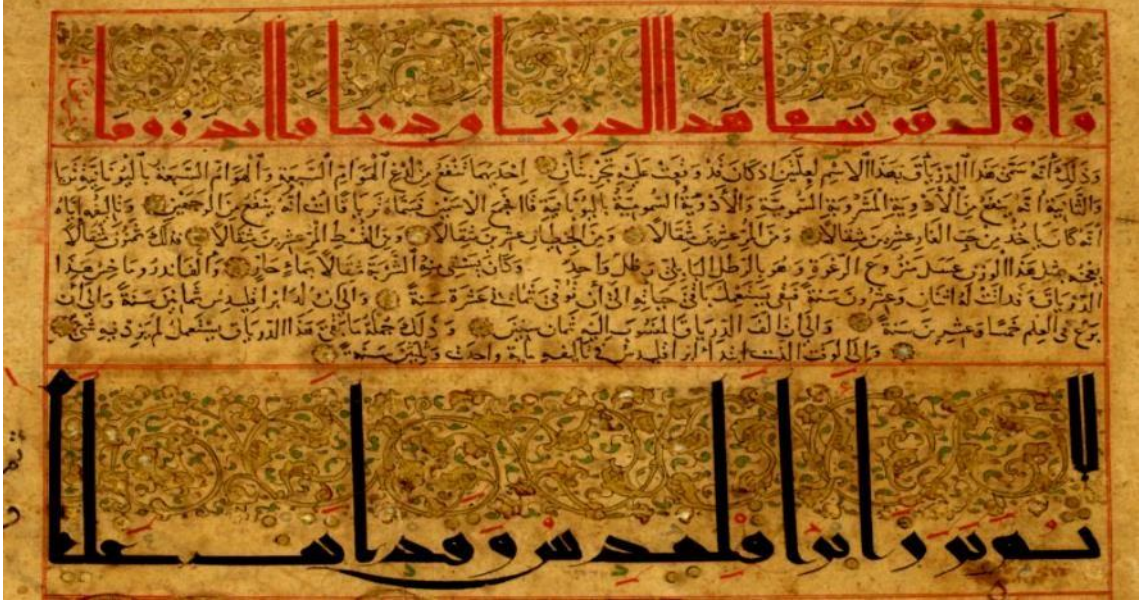 واول سما هذا الدرياق درياقا اندروماخس
وذلك أنه سمى هذا الدرياق بهذا الاسم لعلتين اذ كان قد وقعت عليه تجربتان احديهما تنفع من لدغ الهوام السبعية والهوام السبعية باليونانية ثريا
والثانية أنه ينفع من الأدوية المشروبة السمومية والأدوية السمومية باليونانية قاا فجمع الاسمين فسماه لانه ينفع من الوجهين وتاليفه اياه
انه كان ياخذ من حب الغار عشرين مثقالا ومن المر عشرين مثقالا ومن الجنطيان عشرين مثقالا ومن القسط المر عشرين مثقالا فذلك ثمنون مثقالا
يعجنه بمثل هذا الوزن عسل منزوع الرغوة وهو بالرطل البابلي رطل واحد وكان يسقى منه الشربة مثقالا بماء حار والف اندروماخس هذا
الدرياق وقد اتت له اثنان وعشرون سنة فبقي يستعمل باقي حياته الى أن توفي ثماني عشرة سنة والى ان ابراقليدس ثمانين سنة والى أن
برع في العلم خمسا وعشرين سنة والى ان الف الدرياق المنسوب اليه ثمان سنين وذلك جملة ما بقي هذا الدرياق يستعمل لم يزد فيه شيء
والى الوقت الذي ابتدأ ابراقليدس في تاليفه ماية واحدى وثلثين سنة
ابراقليدس وقد